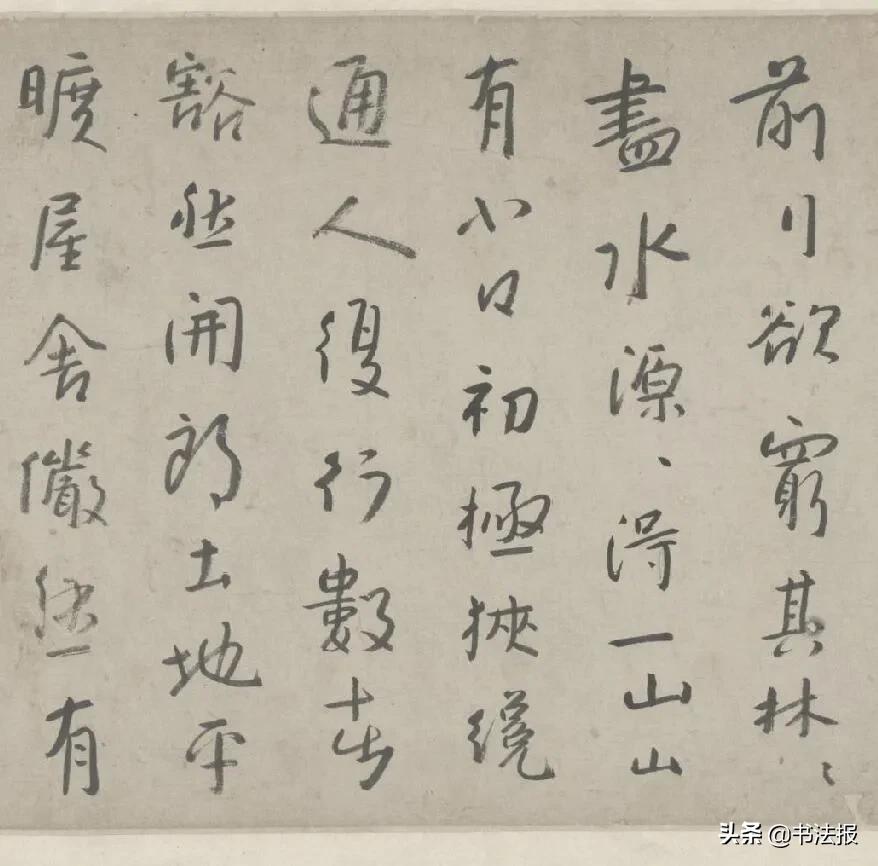 前行欲窮其林〻
盡水源〻得一山山
有小口初極狹纔
通人復行數十步
豁然開朗土地平
曠屋舍儼然有
头条 @书法报